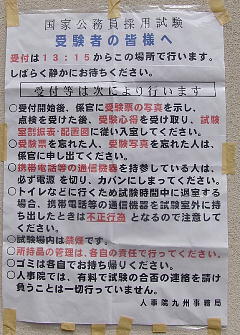 国家公務員採用試験
受験者の皆様へ
受付は13:15からこの場所で行います。
しばらく静かにお待ちください。
受付等は次により行います
○受付開始後、係官に受験票の写真を示し、
点検を受けた後、受験心得を受け取り、試験
室割振表・配置図に従い入室してください。
○受験票を忘れた人、受験写真を忘れた人は、
係官に申し出てください。
○携帯電話等の通信機器を持参している人は、
必ず電源を切り、カバンにしまってください。
○トイレなどに行くため試験時間中に退室する
場合、携帯電話等の通信機器を試験室外に持
ち出したときは不正行為となるので注意して
ください。
○試験場内は禁煙です。
○所持品の管理は、各自の責任で行ってください。
○ゴミは各自でお持ち帰りください。
○人事院では、有料で試験の合否の連絡を請け
負うことは一切行っていません。
人事院九州事務局